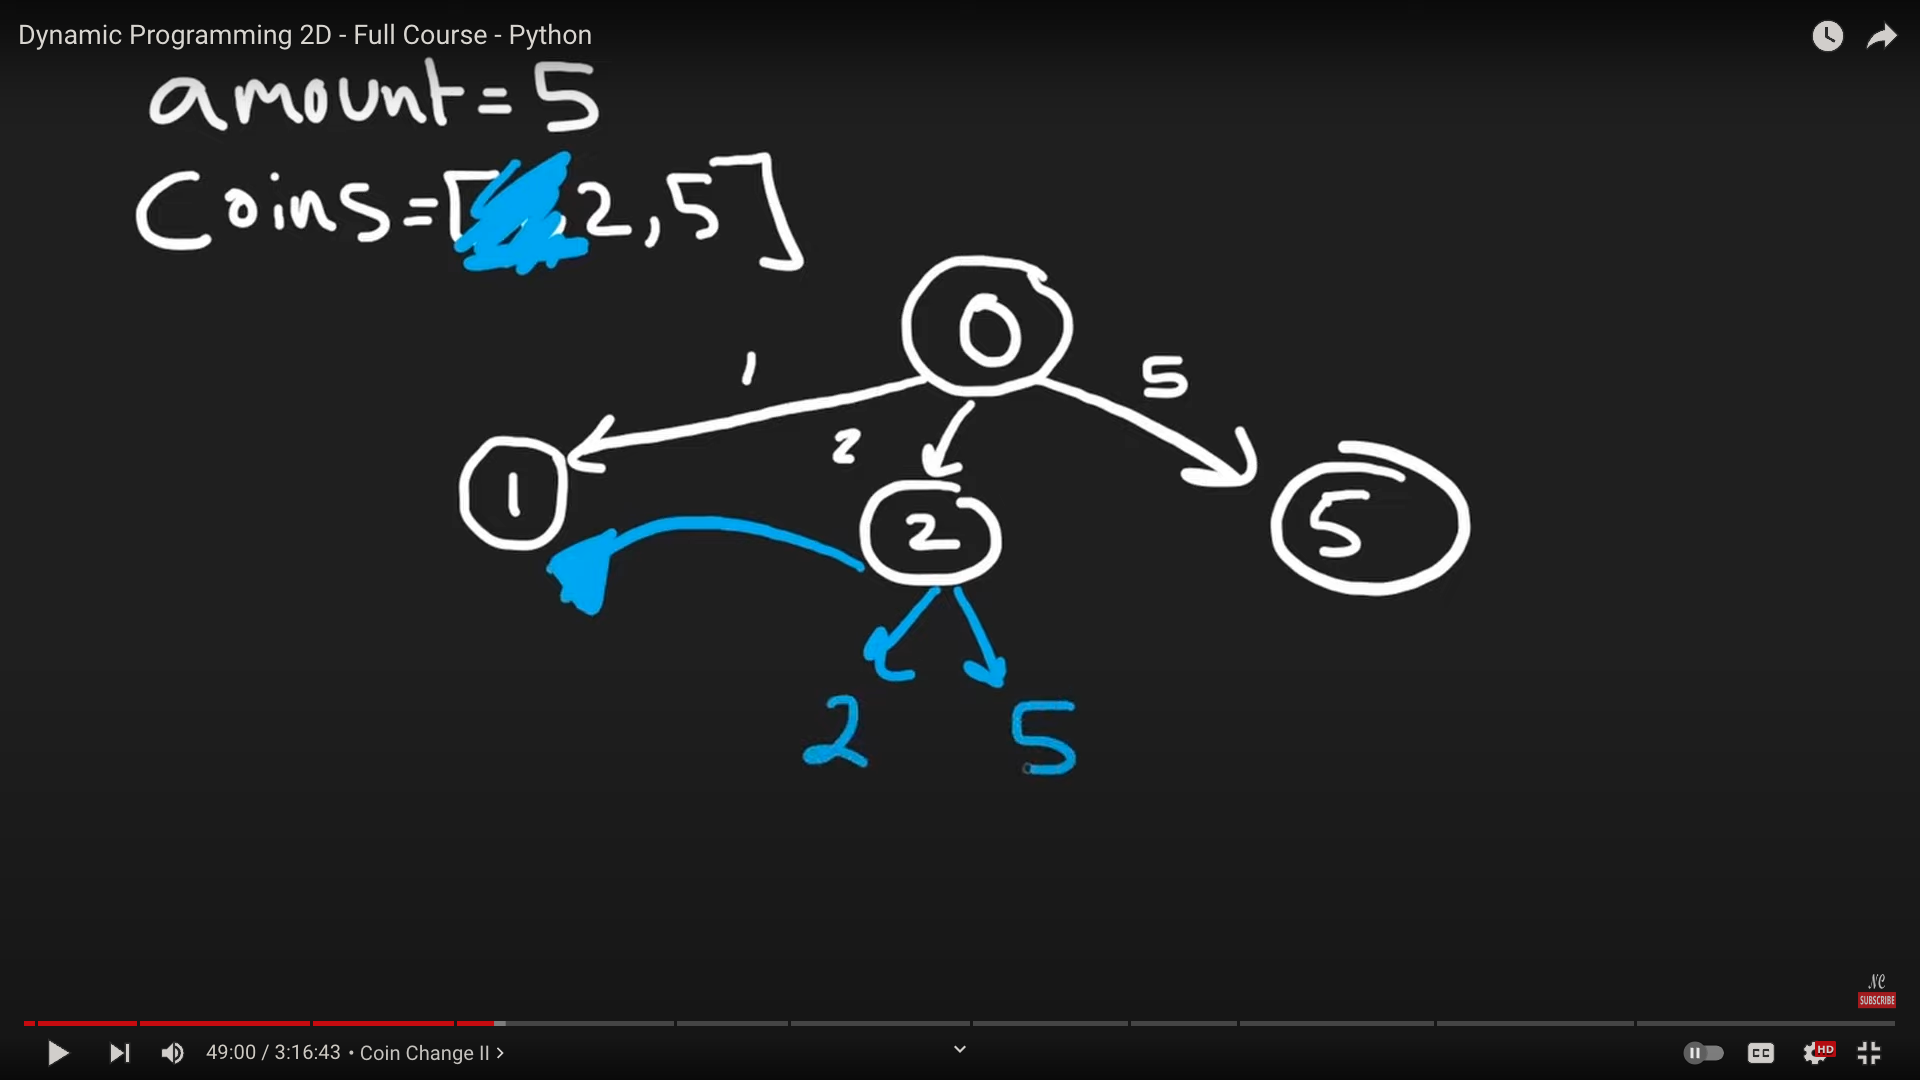 Dynamic Programming 2D - Full Course - Python
amount = 5
Coins = [ , 2, 5]
0
1
5
2
1
2
5
2 5
NC
SUBSCRIBE
49:00 / 3:16:43 • Coin Change II >
CC
HD